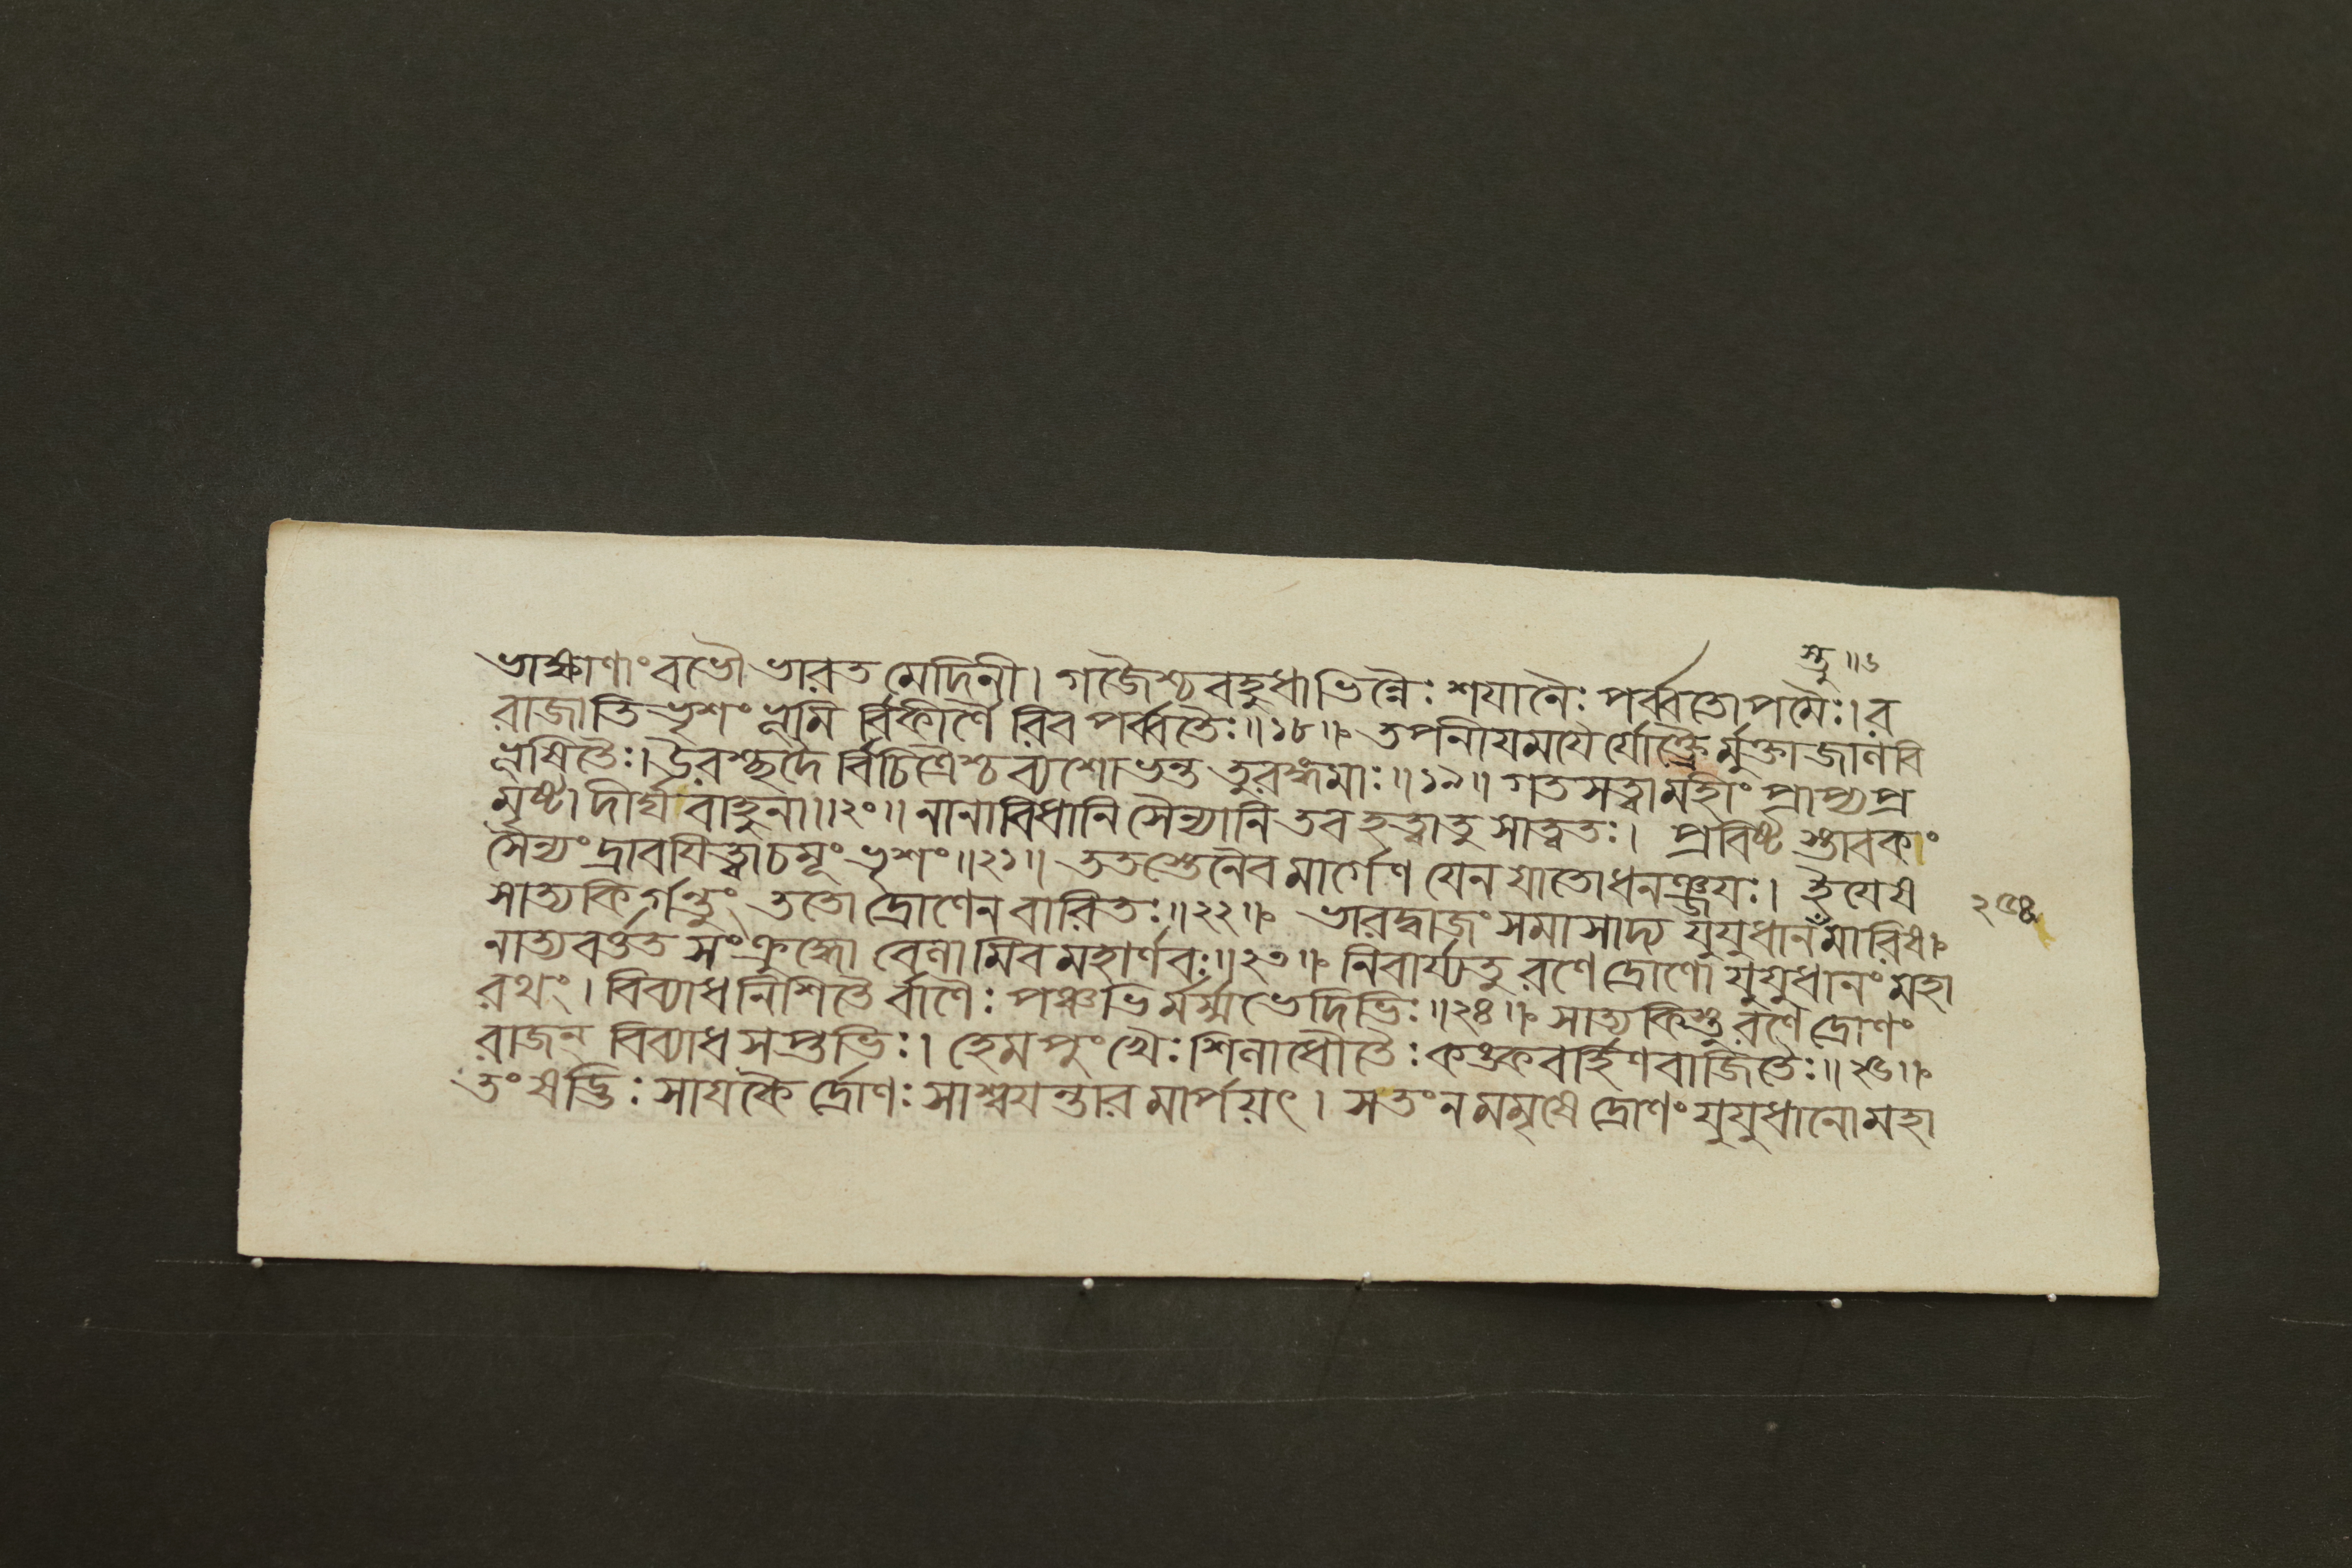 স্তু॥৬
ভাস্করাণাং বভৌ ভারত মেদিনী। গজৈশ্চ বহুধাভিন্নৈঃ শযানৈঃ পর্ব্বতোপমৈঃ। র
রাজাতি ভৃশং ভূমি র্বিকীর্ণৈ রিব পর্ব্বতৈঃ॥১৮॥ তপনীযমযৈর্যোক্ত্রৈর্মুক্তাজালবি
ভূষিতৈঃ। উরশ্ছদৈ র্বিচিত্রৈশ্চ ব্যশোভন্ত তুরঙ্গমাঃ॥১৯॥ গতসত্ত্বামহীং প্রাপ্য প্র
মৃষ্টা দীর্ঘবাহুনা॥২০॥ নানাবিধানি সৈন্যানি তব হত্বাতু সাত্বতঃ। প্রবিষ্ট স্তাবকাং
সৈন্যং দ্রাবযিত্বাচমূং ভৃশং॥২১॥ ততস্তেনৈব মার্গেণ যেন যাতোধনঞ্জযঃ। ইযেষ
সাত্যকির্গন্তুং ততো দ্রোণেন বারিতঃ॥২২॥ ভারদ্বাজং সমাসাদ্য যুযুধানঁমারিষ।
নাত্যবর্ত্তত সংক্রুদ্ধো বেলামিব মহার্ণবঃ॥২৩॥ নিবার্য্যতু রণে দ্রোণো যুযুধানং মহা
রথং। বিব্যাধ নিশিতৈ র্বাণৈঃ পঞ্চভি র্মর্ম্মভেদিভিঃ॥২৪॥ সাত্যকিস্তু রণে দ্রোণং
রাজন্ বিব্যাধ সপ্তভিঃ। হেমপুংখৈঃ শিলাধৌতৈঃ কঙ্কবর্হিণবাজিতৈঃ॥২৫॥
তং ষড্ভিঃ সাযকৈ র্দ্রোণঃ সাশ্বযন্তার মার্পয়ৎ। সতং ন মমৃষে দ্রোণং যুযুধানো মহা